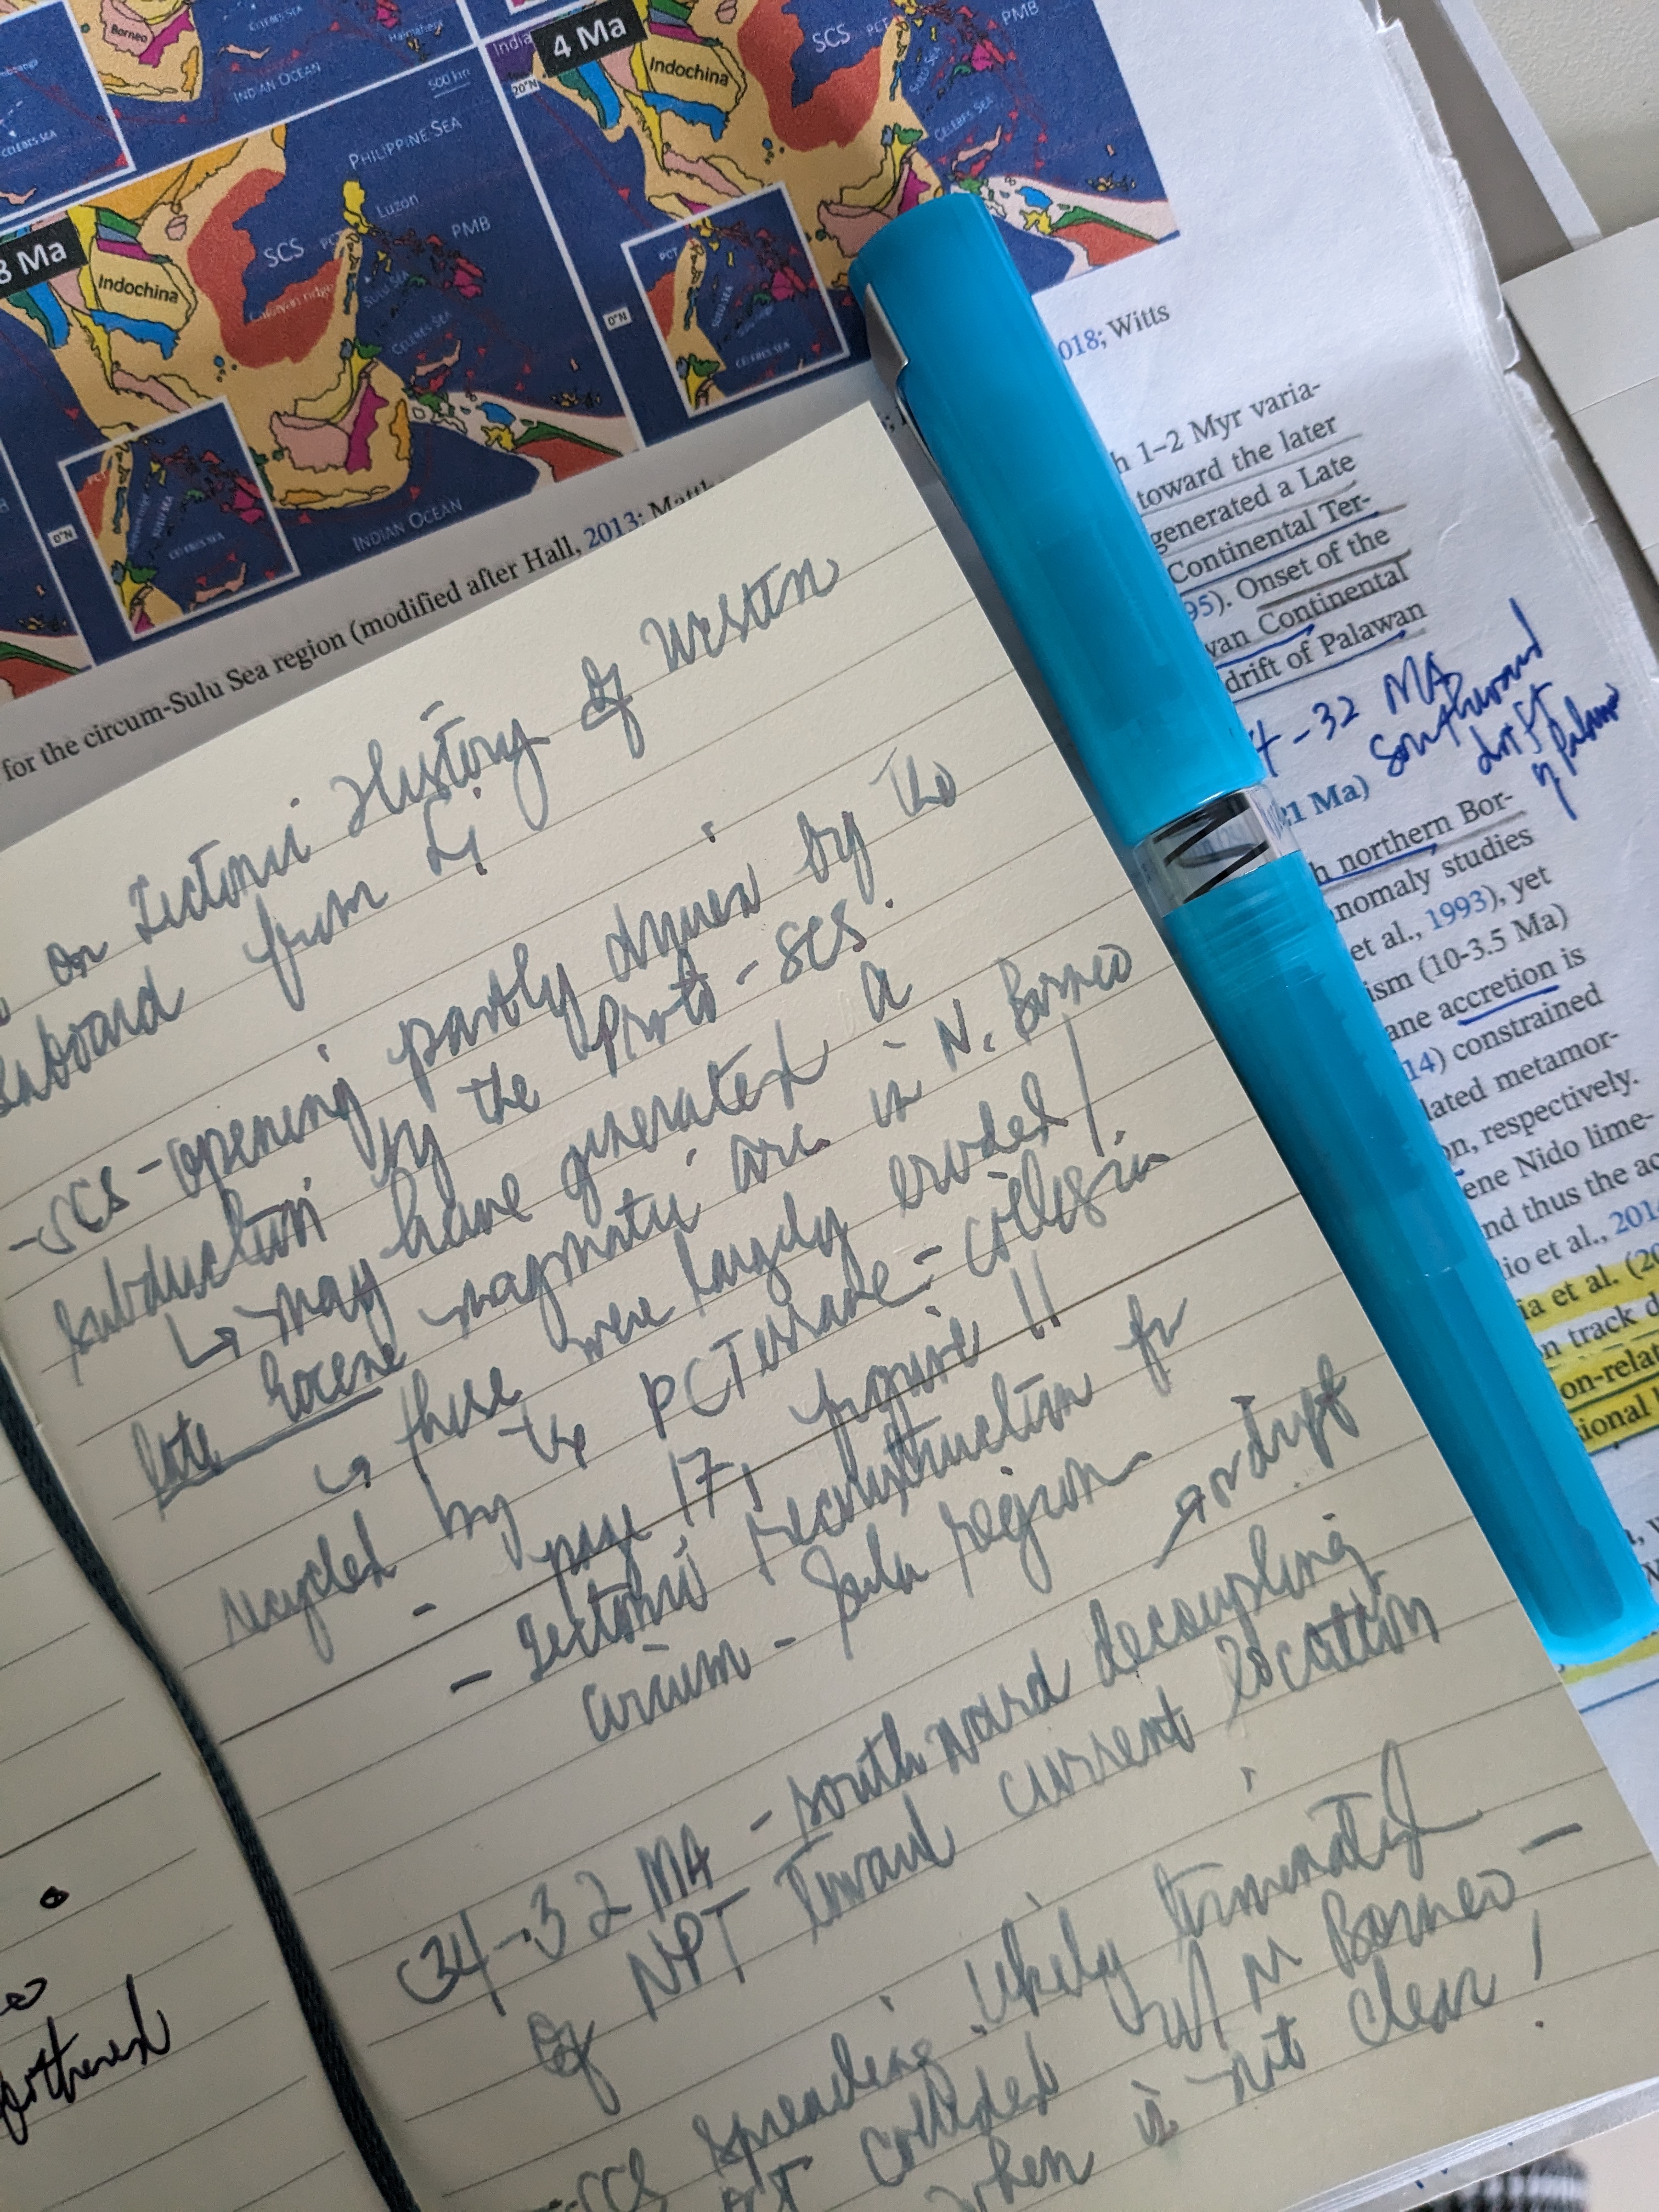 Borneo
CELEBES SEA
Halmahera
INDIAN OCEAN
500 km
CELEBES SEA
PHILIPPINE SEA
Luzon
PMB
SCS
PCT
SULU SEA
CELEBES SEA
8 Ma
Indochina
PCT
SULU SEA
CELEBES SEA
0°N
INDIAN OCEAN
India
4 Ma
20°N
Indochina
SCS
PCT
PMB
SULU SEA
CELEBES SEA
PCT
SULU SEA
CELEBES SEA
0°N
for the circum-Sulu Sea region (modified after Hall, 2013;
018; Witts
h 1–2 Myr varia-
toward the later
generated a Late
Continental Ter-
95). Onset of the
wan Continental
drift of Palawan
4-32 MA
southward
drift
of Palawan
21 Ma)
h northern Bor-
nomaly studies
et al., 1993), yet
ism (10-3.5 Ma)
ane accretion is
14) constrained
lated metamor-
on, respectively.
ene Nido lime-
nd thus the ac
io et al., 201
ia et al. (20
n track d
on-relat
ional
on Tectonic History of Western
board from Li
- SCS - opening partly driven by the
subduction by the Proto-SCS.
↳ may have generated a
late Eocene magmatic arc in N. Borneo
↳ these were largely eroded /
recycled by the PCTerrane - collision
- page 17, figure 11
- Tectonic reconstruction for
circum - Sulu region
→ or drift
34-32 MA - southward decoupling
of NPT toward current location
- SCS spreading likely terminated
PCT collided w/ N Borneo -
when is not clear!
furthered